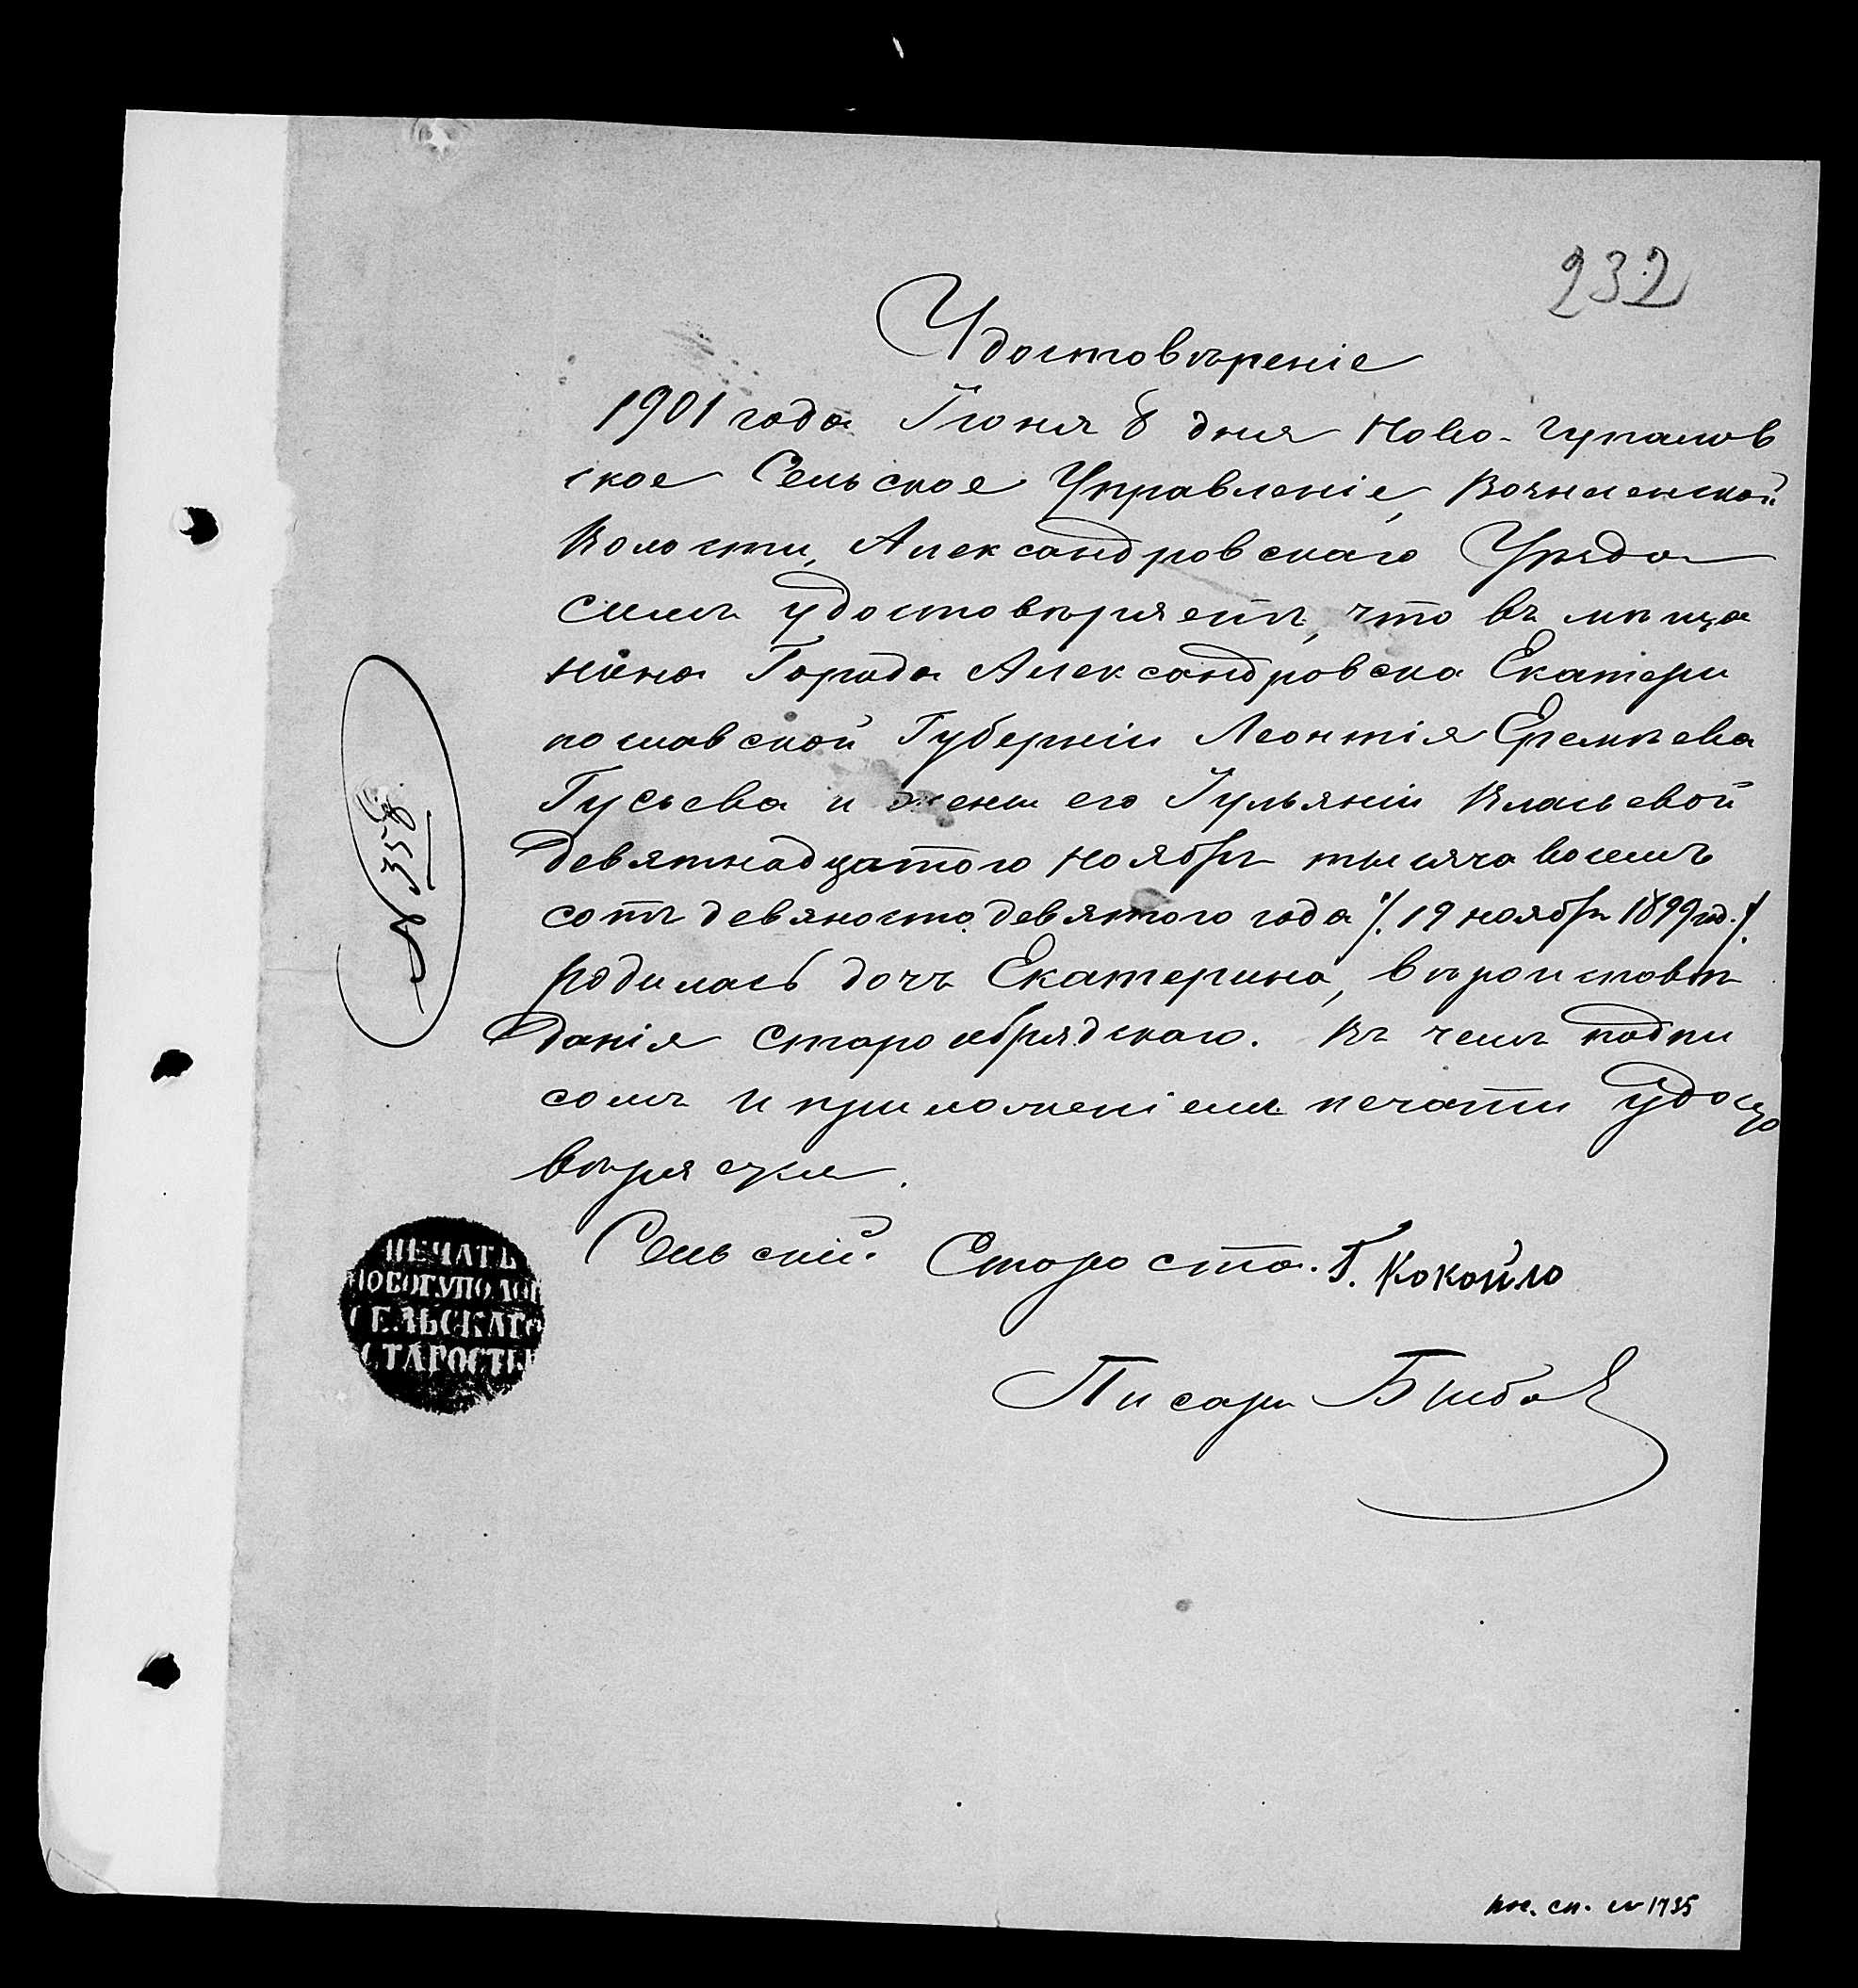 232
Удостовѣреніе
1901 года Іюня 8 дня Ново-Гупалов
ское Сельское Управленіе, Вознесенской
Волости, Александровскаго Уѣзда
симъ удостовѣряетъ, что въ мѣща
нина Города Александровска Екатери
нославской Губерніи Леонтія Еремѣева
Гусьева и жены его Іульяніи Власьевой
девятнадцатого ноября тысяча восемь
сотъ девяносто девятого года /. 19 ноября 1899 год. /.
родилась дочь Екатерина, вѣроисповѣ
данія старообрядскаго. Въ чемъ подпи
сомъ и приложеніемъ печати удосто
вѣряемъ.
Сельскій Староста. Г. Кокойло
Писарь
№ 358
ПЕЧАТЬ
НОВОГУПОЛОВ
СЕЛЬСКАГО
СТАРОСТЫ
пос. сп. № 1735